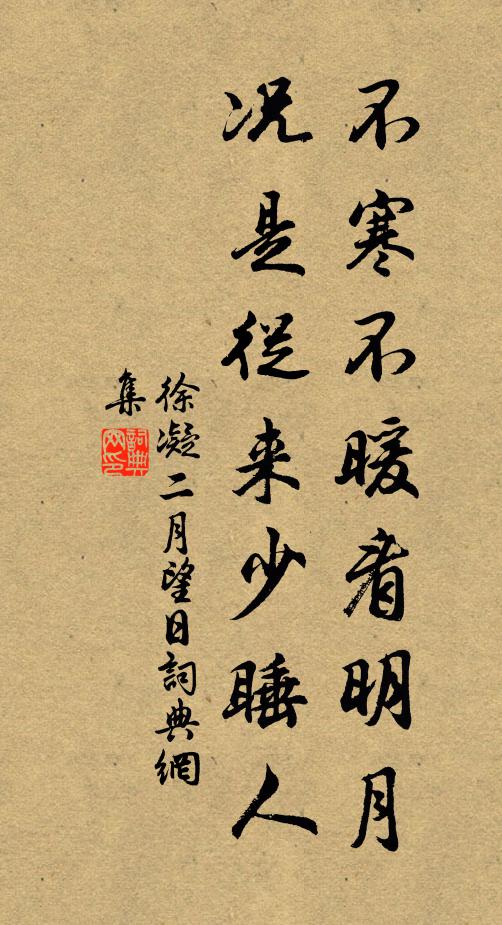 不寒不暖看明月
况是從来少睡人
徐凝二月望日詞典網
集
詞典网印